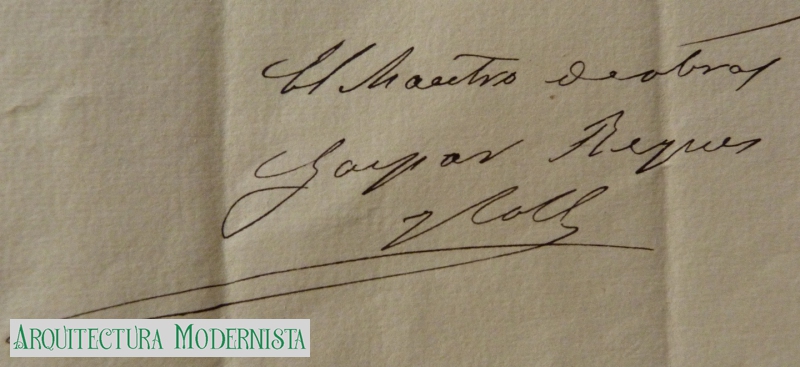 El Maestro de obras
Gaspar Reques
y Coll
ARQUITECTURA MODERNISTA